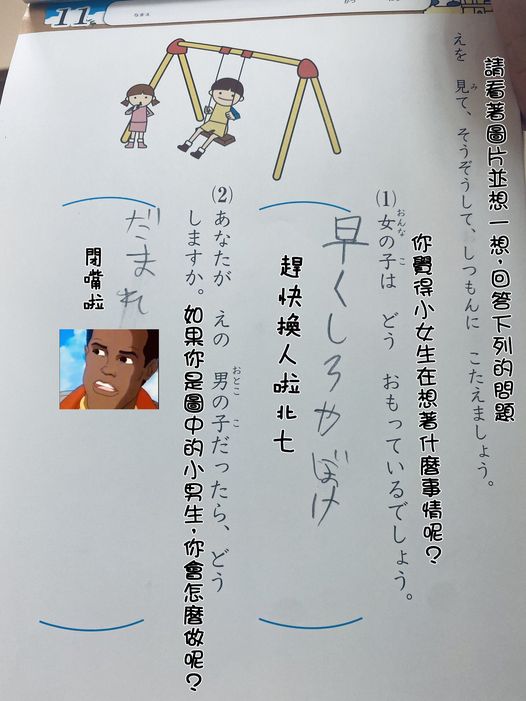 11
なまえ
請看著圖片並想一想，回答下列的問題
えを 見(み)て、そうぞうして、しつもんに こたえましょう。
你覺得小女生在想著什麼事情呢？
(1) 女(おんな)の子(こ)は どう おもっているでしょう。
早くしろやぼけ
趕快換人啦北七
(2) あなたが えの 男(おとこ)の子(こ)だったら、どう
しますか。
如果你是圖中的小男生，你會怎麼做呢？
だまれ
閉嘴啦